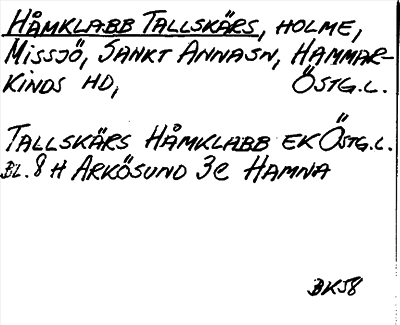 HÅMKLABB TALLSKÄRS, HOLME,
MISSJÖ, SANKT ANNASN, HAMMAR-
KINDS HD, ÖSTG.L.
TALLSKÄRS HÅMKLABB EK ÖSTG.L.
BL. 8 H ARKÖSUND 3e HAMNA
BK58